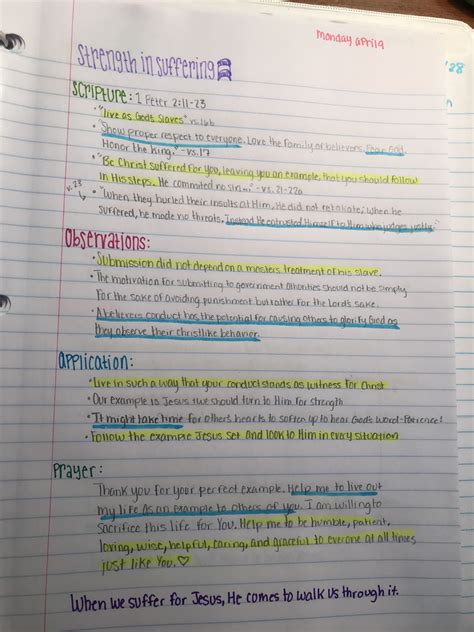 monday april 9
'28
Strength in suffering
SCRIPTURE: 1 Peter 2:11-23
• "live as God's Slaves" vs.16b
• Show proper respect to everyone. Love the family of believers. Fear God
Honor the King." - vs.17
• "Be Christ suffered for you, leaving you an example, that you should follow
in His steps. He commited no sin..." - vs. 21-22a
v.23
• "When they hurled their insults at Him, He did not retaliate; when he
suffered, he made no threats. Instead He entrusted Himself to Him who judges justly."
Observations:
• Submission did not depend on a masters treatment of his slave.
• The motivation for submitting to government athorities should not be simply
for the sake of avoiding punishment but rather for the Lord's sake.
• A believers conduct has the potential for causing others to glorify God as
they observe their christlike behavior.
Application:
• live in such a way that your conduct stands as witness for Christ
• Our example is Jesus & we should turn to Him for strength
• It might take time for others' hearts to soften up to hear God's Word - Patience!
• Follow the example Jesus set and look to Him in every situation
Prayer:
Thank you for your perfect example. Help me to live out
my life as an example to others of you. I am willing to
sacrifice this life for You. Help me to be humble, patient,
loving, wise, helpful, caring, and graceful to everone at all times
just like You. ♡
When we suffer for Jesus, He comes to walk us through it.